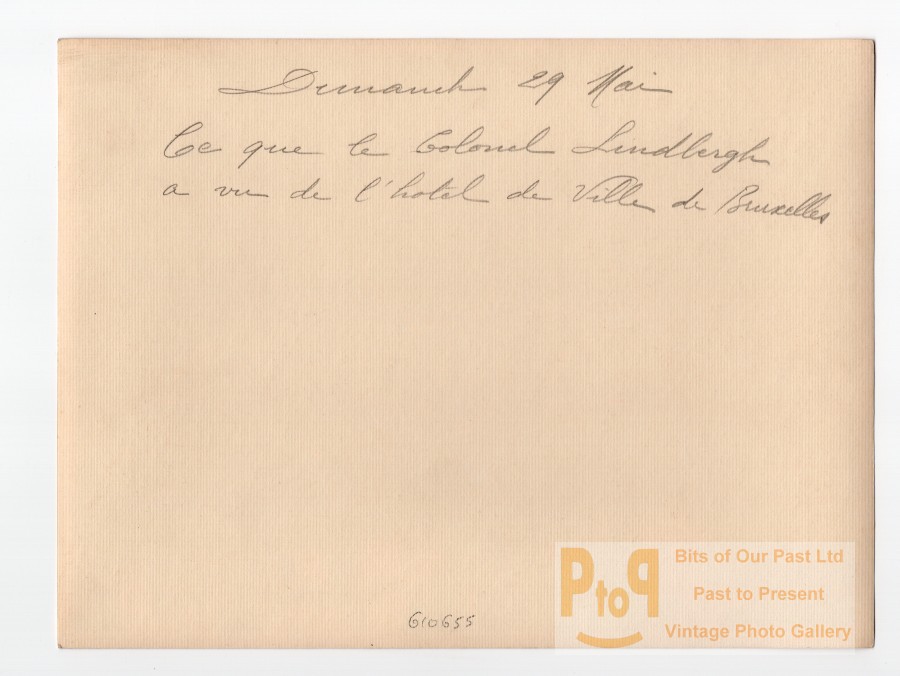 Dimanch 29 Mai
Ce que le Colonel Lindbergh
a vu de l'hotel de Ville de Bruxelles
610655
PtoP
Bits of Our Past Ltd
Past to Present
Vintage Photo Gallery